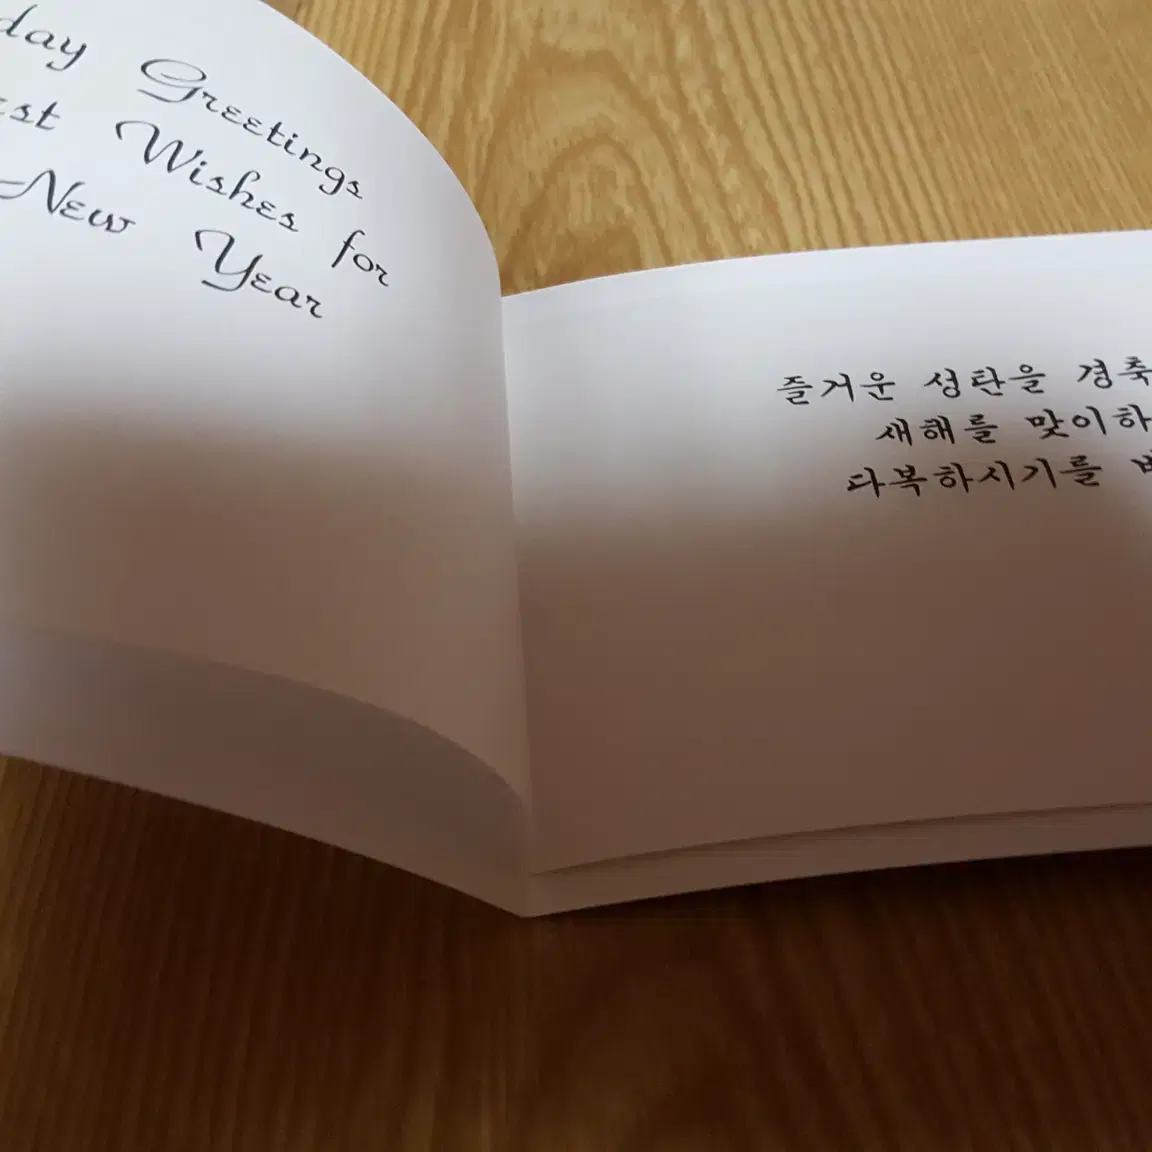 day Greetings
Wishes for
New Year
즐거운 성탄을 경축
새해를 맞이하
다복하시기를